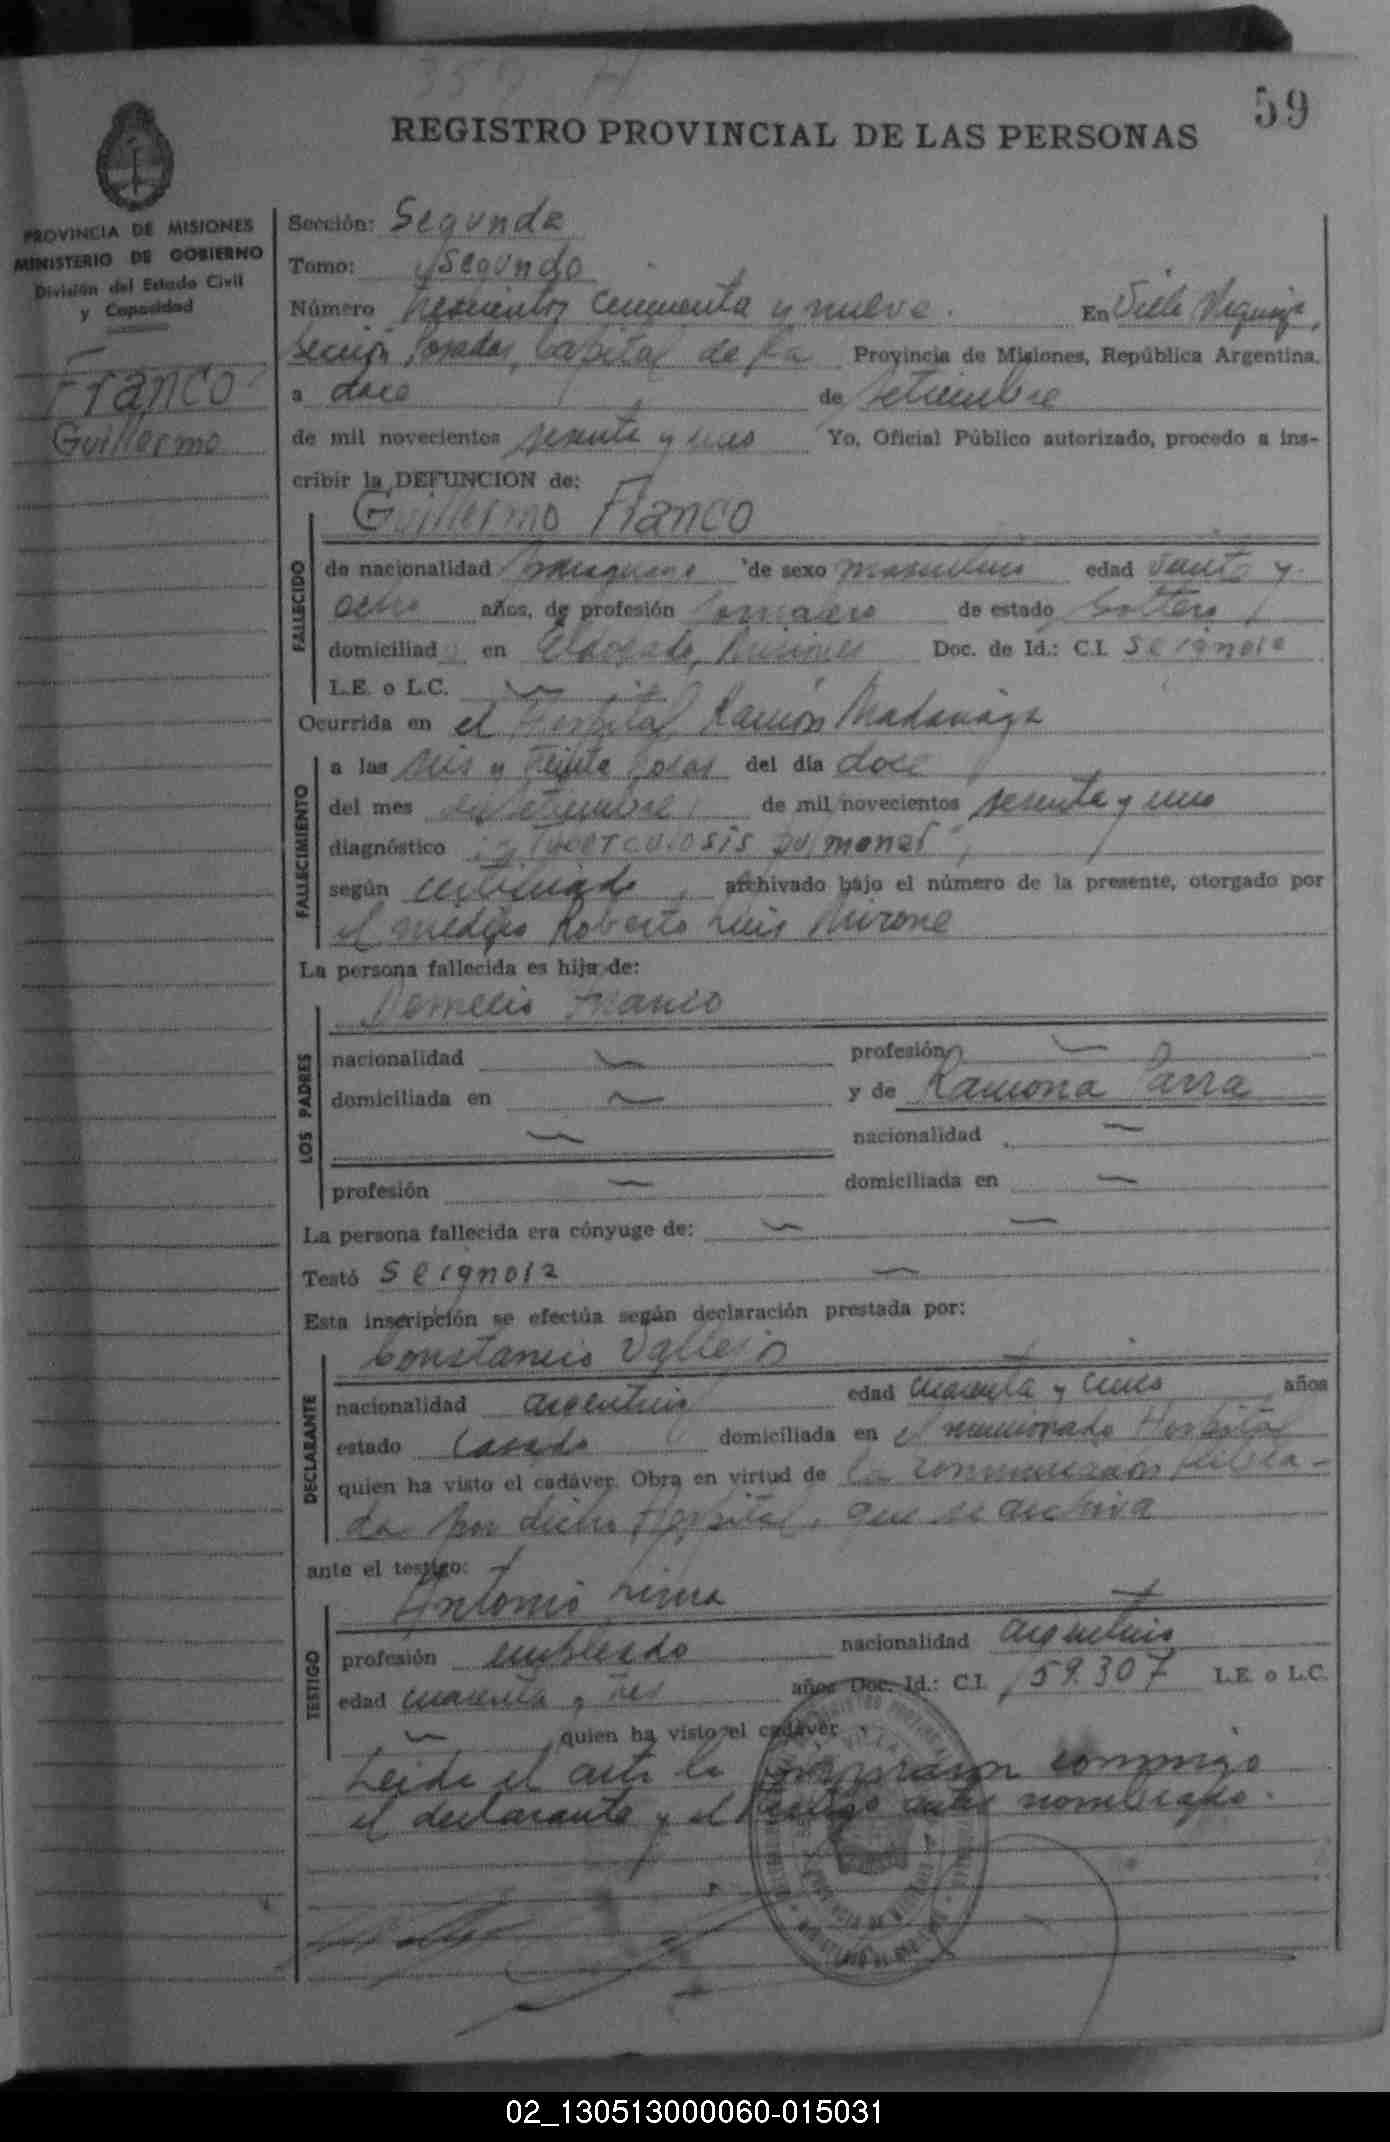 359 H
59
REGISTRO PROVINCIAL DE LAS PERSONAS
PROVINCIA DE MISIONES
MINISTERIO DE GOBIERNO
División del Estado Civil
y Capacidad
Franco
Guillermo
Sección: Segunda
Tomo: Segundo
Número Trescientos cincuenta y nueve. En Villa Urquiza,
Sección Posadas, Capital de la Provincia de Misiones, República Argentina,
a doce de Setiembre
de mil novecientos sesenta y uno Yo, Oficial Público autorizado, procedo a ins-
cribir la DEFUNCION de:
Guillermo Franco
FALLECIDO
de nacionalidad paraguaya de sexo masculino edad veinte y
ocho años, de profesión Jornalero de estado Soltero
domiciliado en Eldorado, Misiones Doc. de Id.: C.I. Se ignora
L.E. o L.C.
Ocurrida en el Hospital Ramón Madariaga
FALLECIMIENTO
a las seis y treinta horas del día doce
del mes de Setiembre de mil novecientos sesenta y uno
diagnóstico "Tuberculosis pulmonar"
según certificado, archivado bajo el número de la presente, otorgado por
el medico Roberto Luis Mirone
La persona fallecida es hija de:
LOS PADRES
Franco
nacionalidad profesión
domiciliada en y de Ramona Parra
nacionalidad
profesión domiciliada en
La persona fallecida era cónyuge de:
Testó Se ignora
Esta inscripción se efectúa según declaración prestada por:
Constancio Vallejo
DECLARANTE
nacionalidad argentino edad cuarenta y cinco años
estado Casado domiciliada en el mencionado Hospital
quien ha visto el cadáver. Obra en virtud de la comunicación
da por dicho Hospital, que se archiva
ante el testigo:
Antonio Lima
TESTIGO
profesión empleado nacionalidad argentino
edad cuarenta y tres años Doc. Id.: C.I. 59.307 L.E. o L.C.
quien ha visto el cadáver
Leida el acta la firmaron conmigo
el declarante y el testigo antes nombrado.
02_130513000060-015031